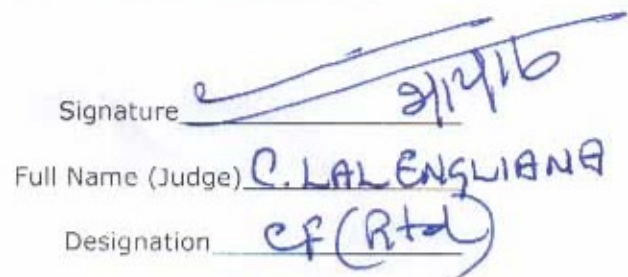 Signature 2/12/16
Full Name (Judge) C. LALENGLIANA
Designation CF (Rtd)